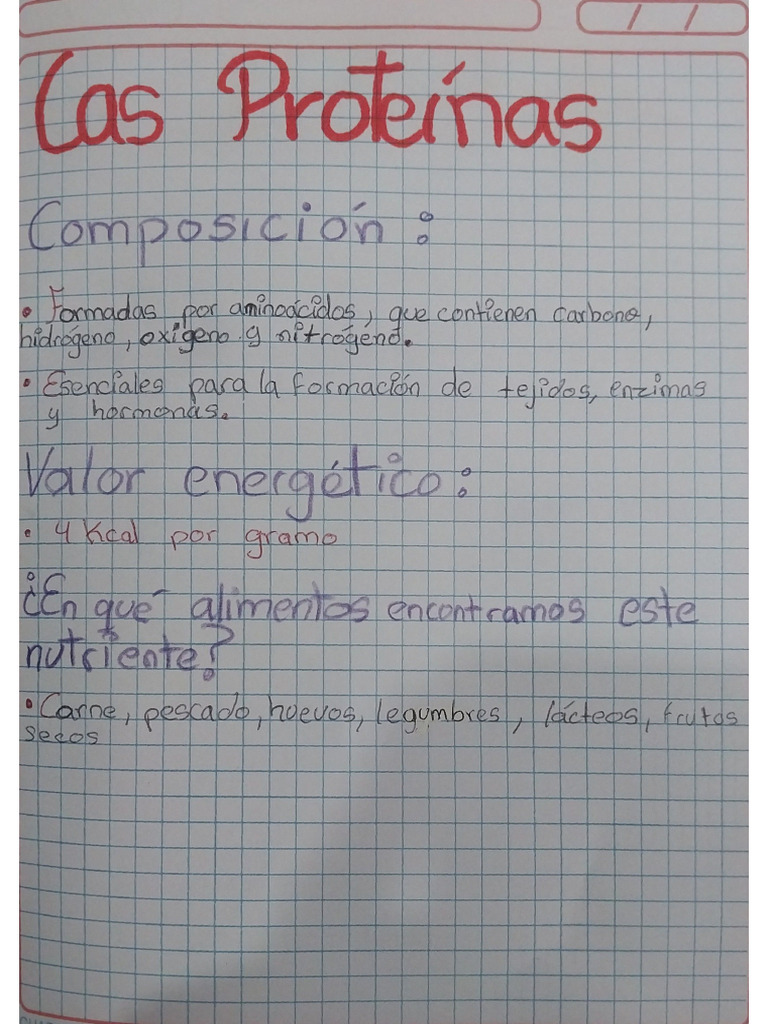 Las Proteínas
Composición:
• Formadas por aminoácidos, que contienen carbono,
hidrógeno, oxígeno y nitrógeno.
• Esenciales para la formación de tejidos, enzimas
y hormonas.
Valor energético:
• 4 Kcal por gramo
¿En qué alimentos encontramos este
nutriente?
• Carne, pescado, huevos, legumbres, lácteos, frutos
secos